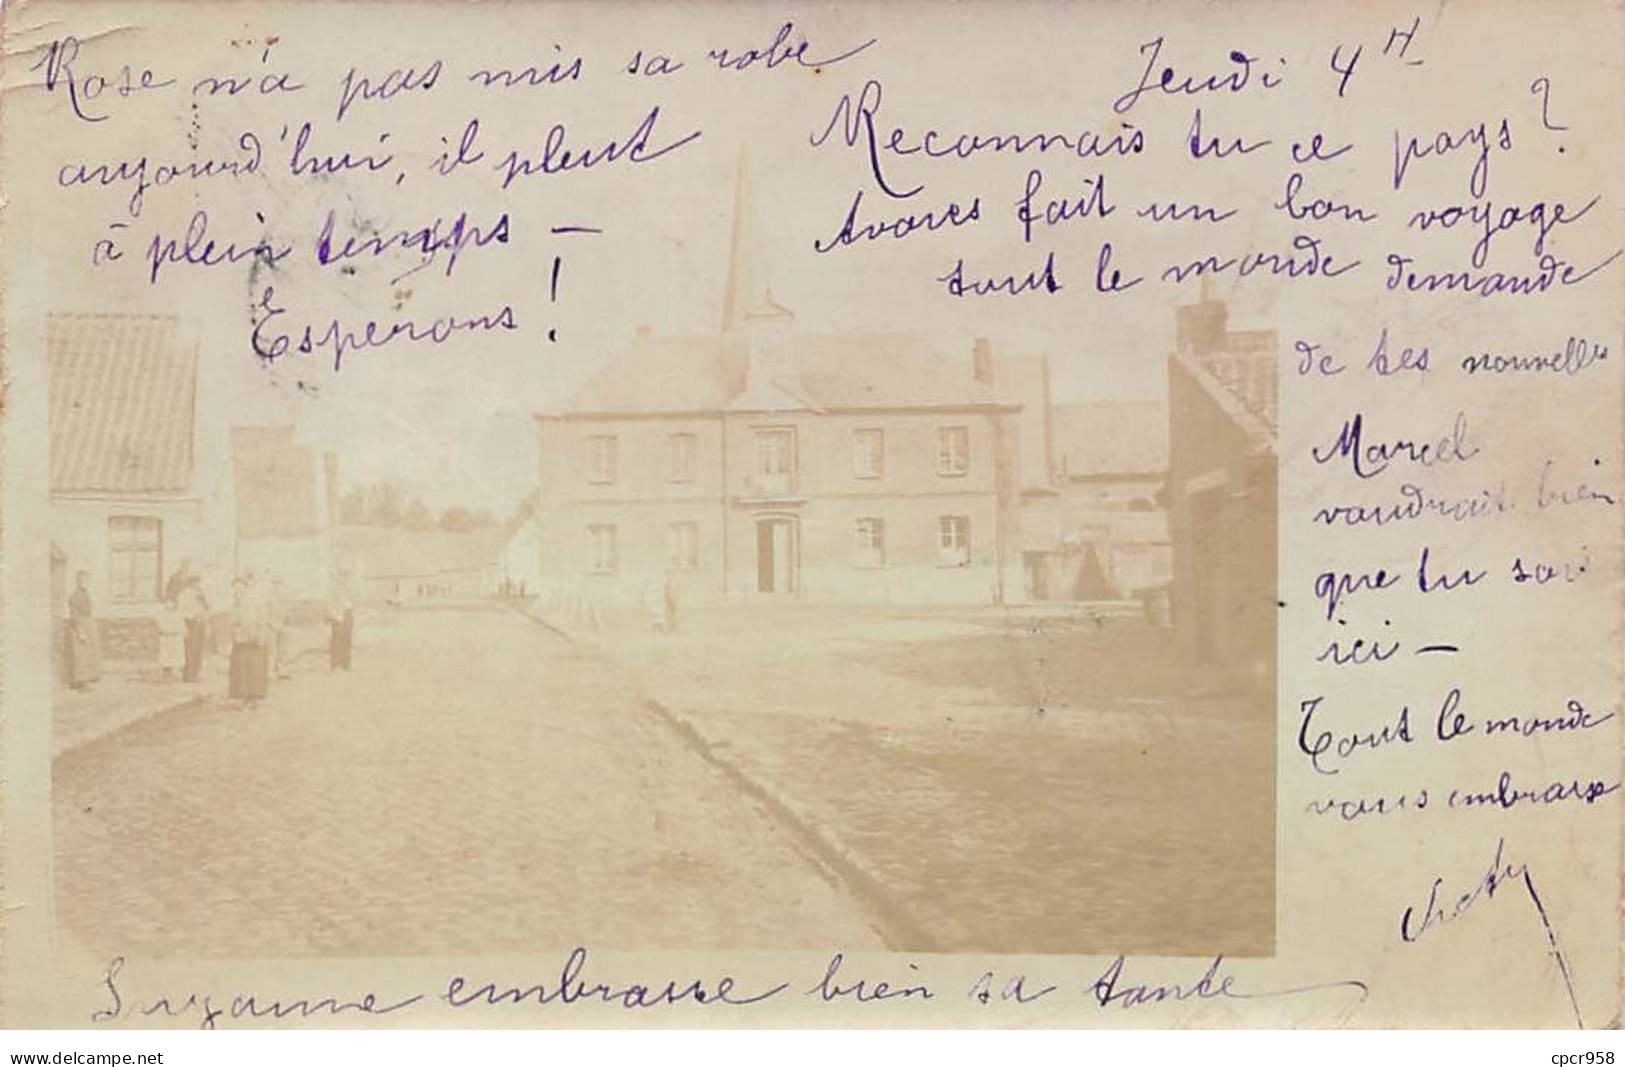 Rose n'a pas mis sa robe
aujourd'hui, il pleut
à plein temps —
Esperons !
Jeudi 4 H
Reconnais tu ce pays ?
Avares fait un bon voyage
tout le monde demande
de tes nouvelles
Marcel
voudrait bien
que tu sois
ici —
Tout le monde
vous embrasse
Suzanne embrasse bien sa tante
www.delcampe.net
cpcr958